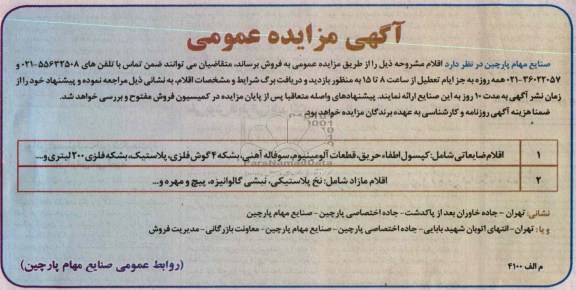 آگهی مزایده عمومی
صنایع مهام پارچین در نظر دارد اقلام مشروحه ذیل را از طریق مزایده عمومی به فروش برساند، متقاضیان می توانند ضمن تماس با تلفن های ۵۵۶۳۲۵۰۸-۰۲۱ و
۳۶۰۲۲۰۵۷-۰۲۱ همه روزه به جز ایام تعطیل از ساعت ۸ تا ۱۵ به منظور بازدید و دریافت برگ شرایط و مشخصات اقلام، به نشانی ذیل مراجعه نموده و پیشنهاد خود را از
زمان نشر آگهی به مدت ۱۰ روز به این صنایع ارائه نمایند. پیشنهادهای واصله متعاقبا پس از پایان مزایده در کمیسیون فروش مفتوح و بررسی خواهد شد.
ضمنا هزینه آگهی روزنامه و کارشناسی به عهده برندگان مزایده خواهد بود.
۱ اقلام ضایعاتی شامل: کپسول اطفاء حریق، قطعات آلومینیوم، سوفاله آهنی، بشکه ۴ گوش فلزی، پلاستیک، بشکه فلزی ۲۰۰ لیتری و...
۲ اقلام مازاد شامل: نخ پلاستیکی، نبشی گالوانیزه، پیچ و مهره و...
نشانی: تهران - جاده خاوران بعد از پاکدشت - جاده اختصاصی پارچین - صنایع مهام پارچین
و یا: تهران - انتهای اتوبان شهید بابایی - جاده اختصاصی پارچین - صنایع مهام پارچین - معاونت بازرگانی - مدیریت فروش
م الف ۴۱۰۰ (روابط عمومی صنایع مهام پارچین)